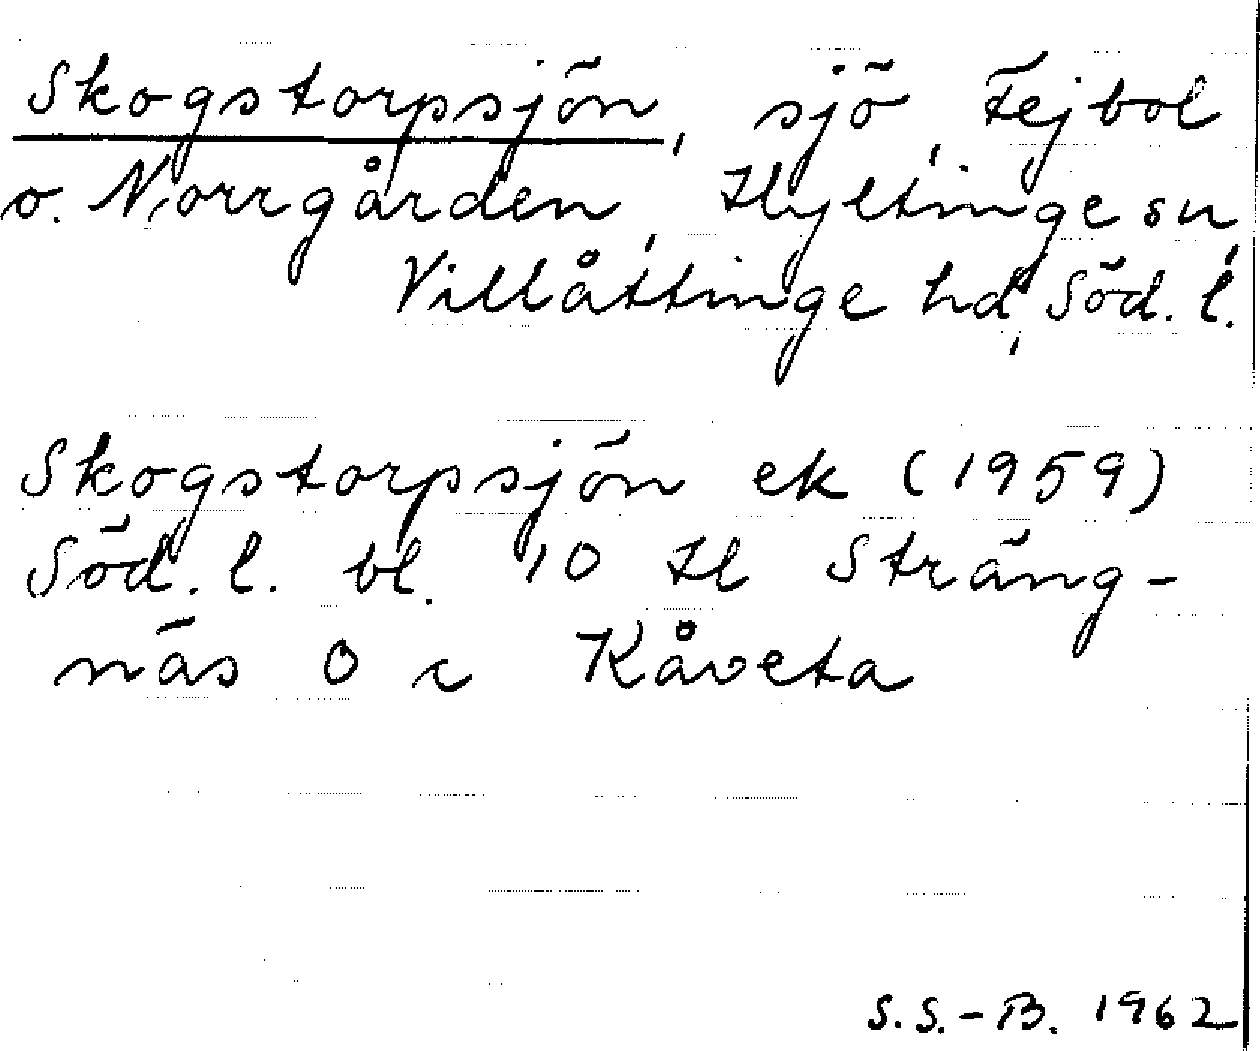 Skogstorpsjön, sjö, Fejbol
o. Norrgården, Hyltinge sn,
Villåttinge hd, Söd. l.
Skogstorpsjön ek (1959)
Söd. l. bl. 10 H Sträng-
näs O c Kåveta
S.S.-B. 1962